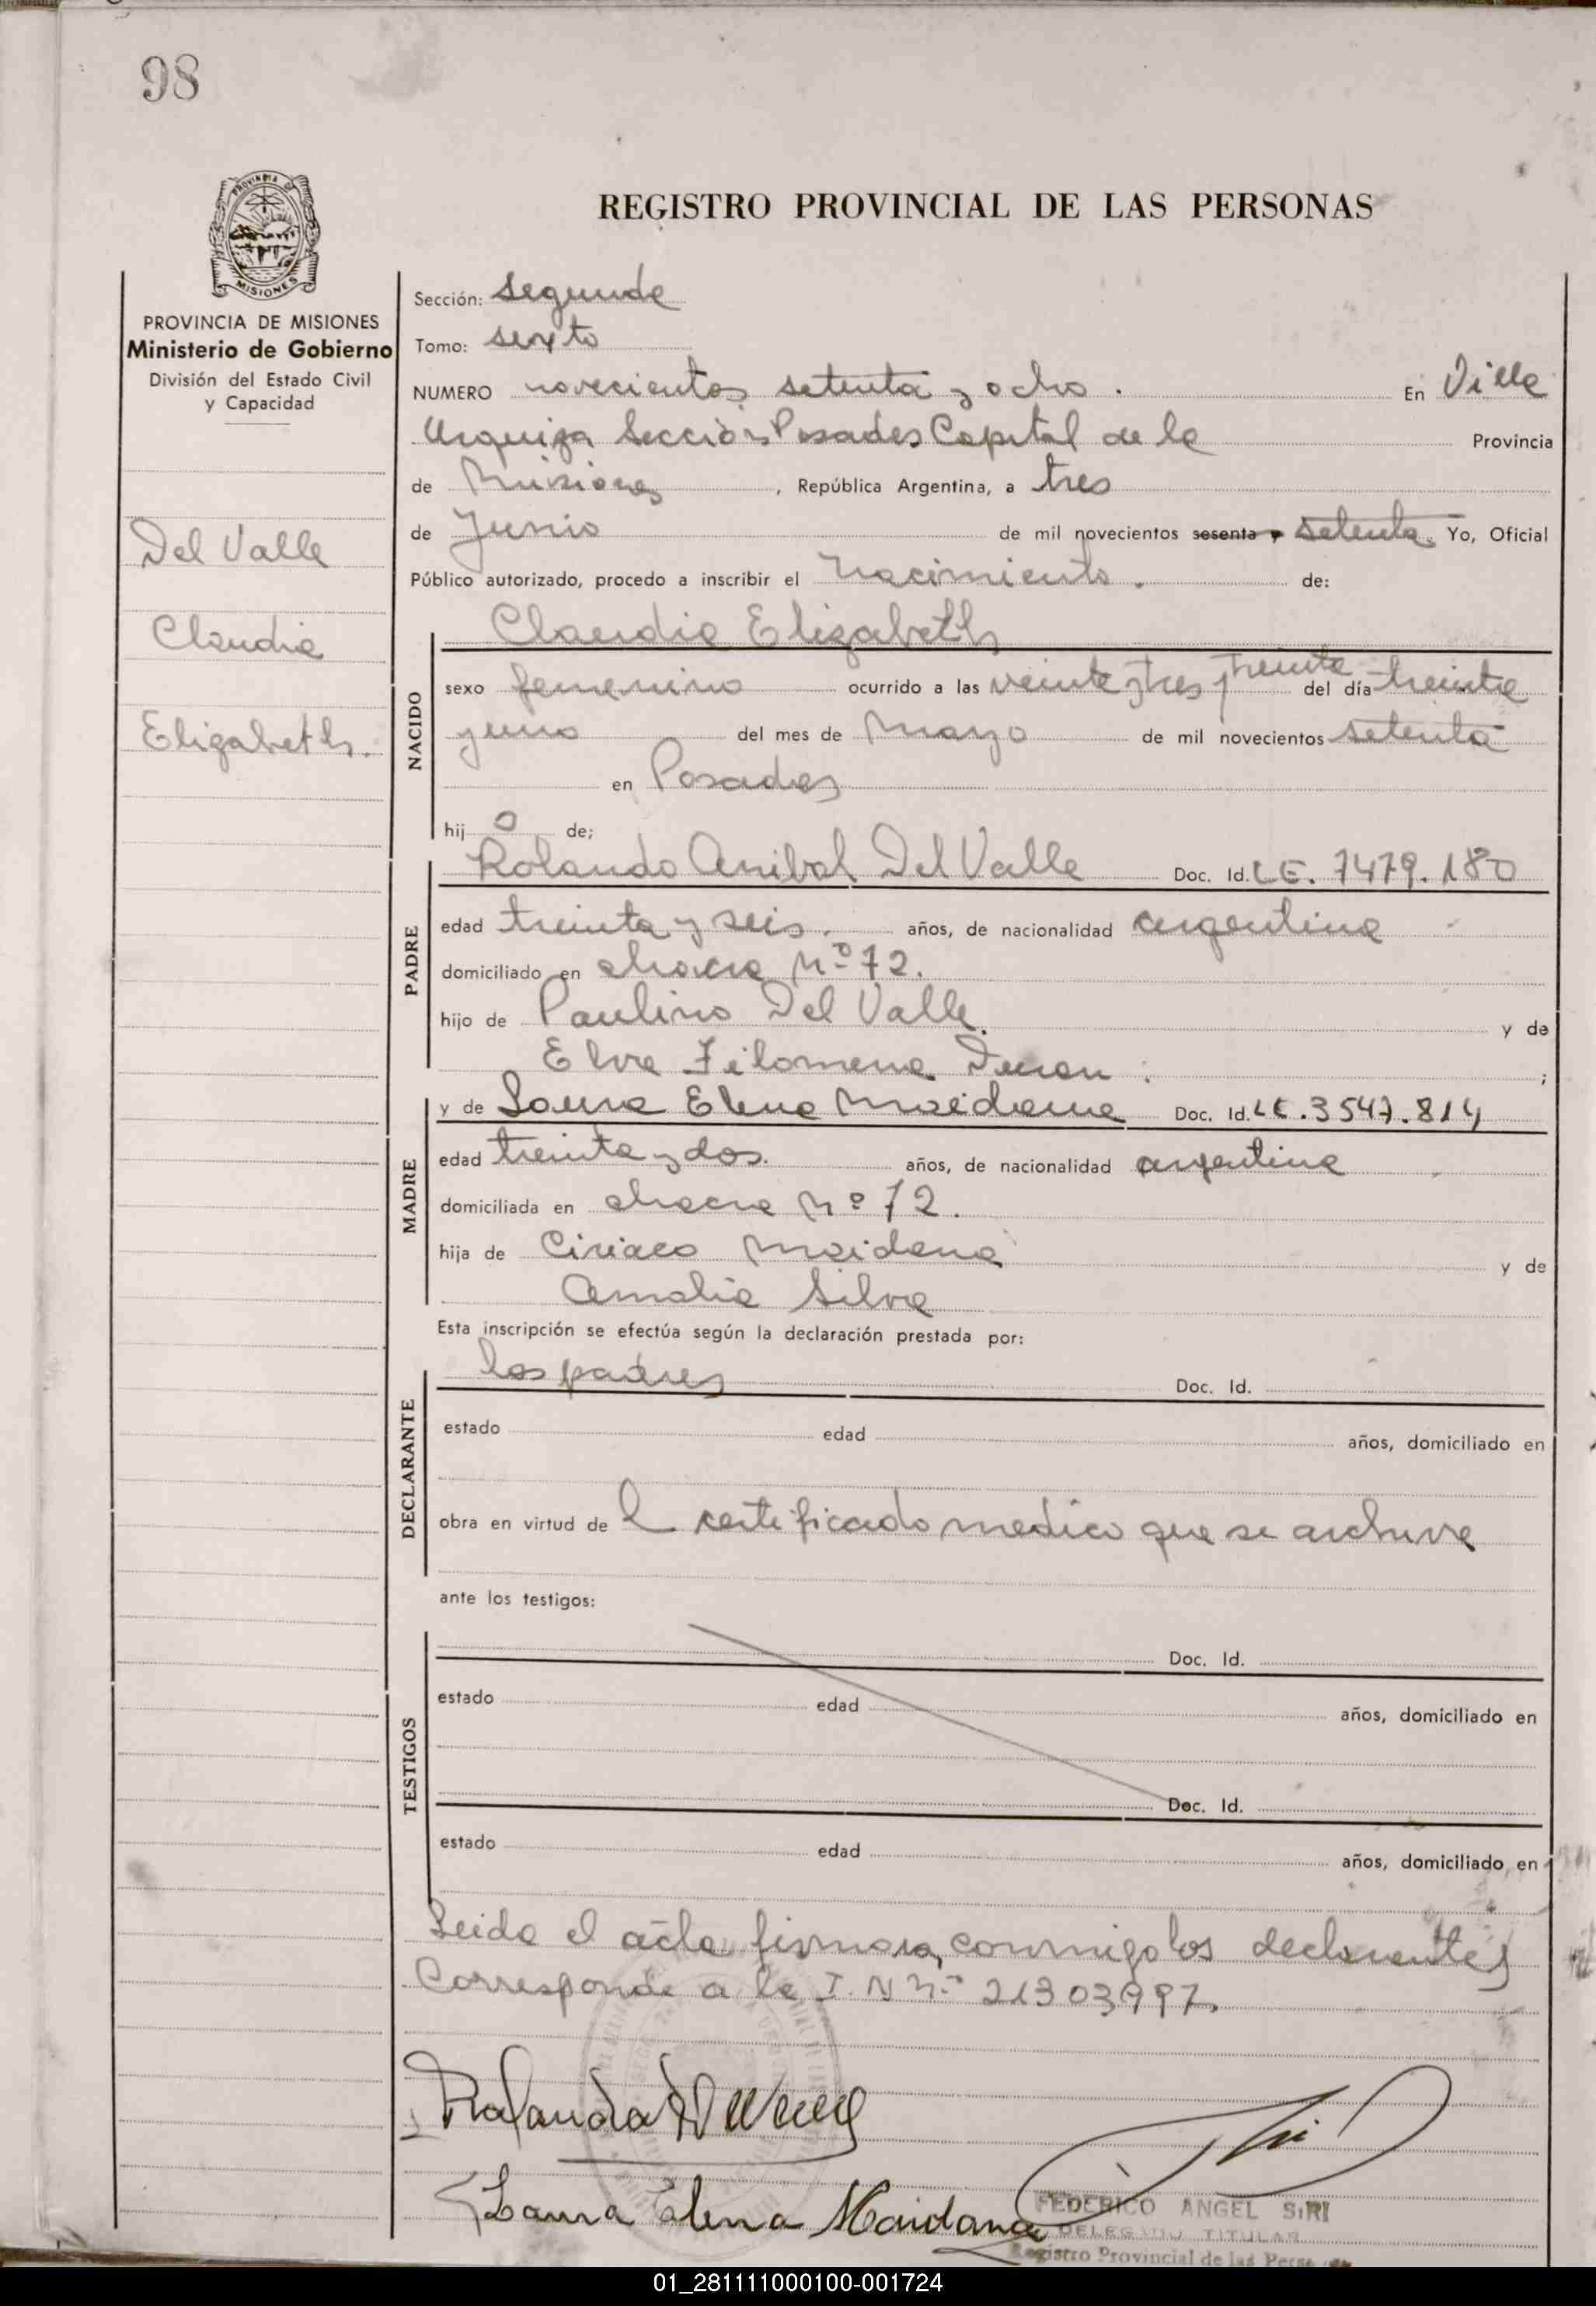 98
PROVINCIA DE
MISIONES
REGISTRO PROVINCIAL DE LAS PERSONAS
PROVINCIA DE MISIONES
Ministerio de Gobierno
División del Estado Civil
y Capacidad
Del Valle
Claudia
Elizabeth.
Sección: segunda
Tomo: sexto
NUMERO novecientos setenta y ocho. En Villa
Urquiza Sección Posadas Capital de la Provincia
de Misiones, República Argentina, a tres
de Junio de mil novecientos sesenta y setenta. Yo, Oficial
Público autorizado, procedo a inscribir el nacimiento. de:
NACIDO
Claudia Elizabeth
sexo femenino ocurrido a las veinte y tres y treinta del día treinta
y uno del mes de Marzo de mil novecientos setenta
en Posadas
hij a de;
PADRE
Rolando Anibal Del Valle Doc. Id. L.E. 7479.180
edad treinta y seis. años, de nacionalidad argentina
domiciliado en chacra Nº 72.
hijo de Paulino Del Valle. y de
Elva Filomena Duran. ;
MADRE
y de Laura Elena Maidana Doc. Id. L.C. 3547.814
edad treinta y dos. años, de nacionalidad argentina
domiciliada en chacra Nº 72.
hija de Ciriaco Maidana y de
Amalia Silva
Esta inscripción se efectúa según la declaración prestada por:
DECLARANTE
los padres Doc. Id.
estado edad años, domiciliado en
obra en virtud de l certificado medico que se archiva
ante los testigos:
TESTIGOS
Doc. Id.
estado edad años, domiciliado en
Doc. Id.
estado edad años, domiciliado en
Leida el acta firman conmigo los declarantes
Corresponde a la I. N Nº 21303997.
Rolando D Valle
Laura Elena Maidana
FEDERICO ANGEL SIRI
DELEGADO TITULAR
Registro Provincial de las Personas
01_281111000100-001724